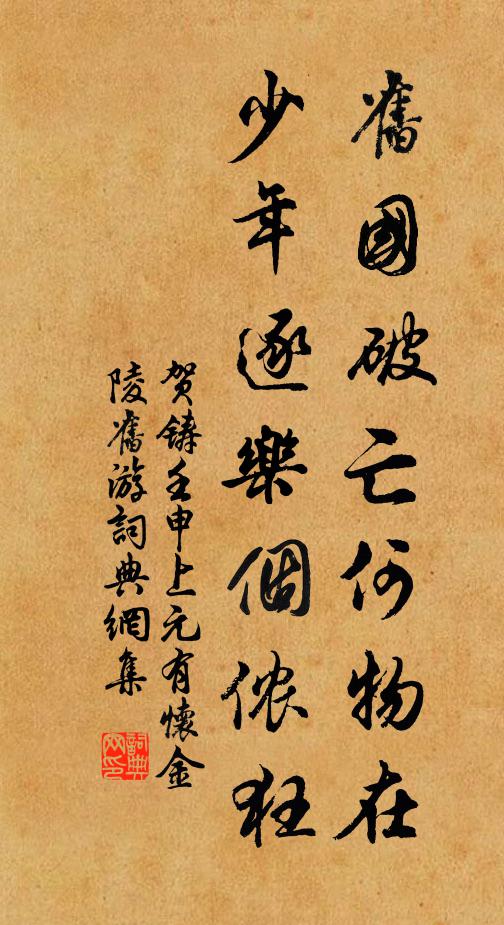 舊國破亡何物在
少年逐樂個侬狂
贺鑄壬申上元有懷金
陵舊游詞典網集
詞典网印